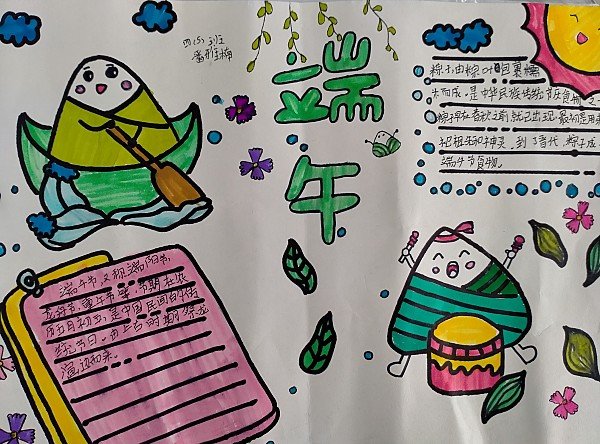 四(5)班
潘雅梅
端
午
粽子由粽叶包裹糯
米而成,是中华民族传统节庆食物之一
粽子早在春秋之前就已出现,最初是用来
祀祖先和神灵,到了晋代,粽子成
端午节食物。
端午节,又称端阳节,
龙舟节,重午节等,节期在农
历五月初五,是中国民间的传
统节日,由上古时期祭龙
演变而来。